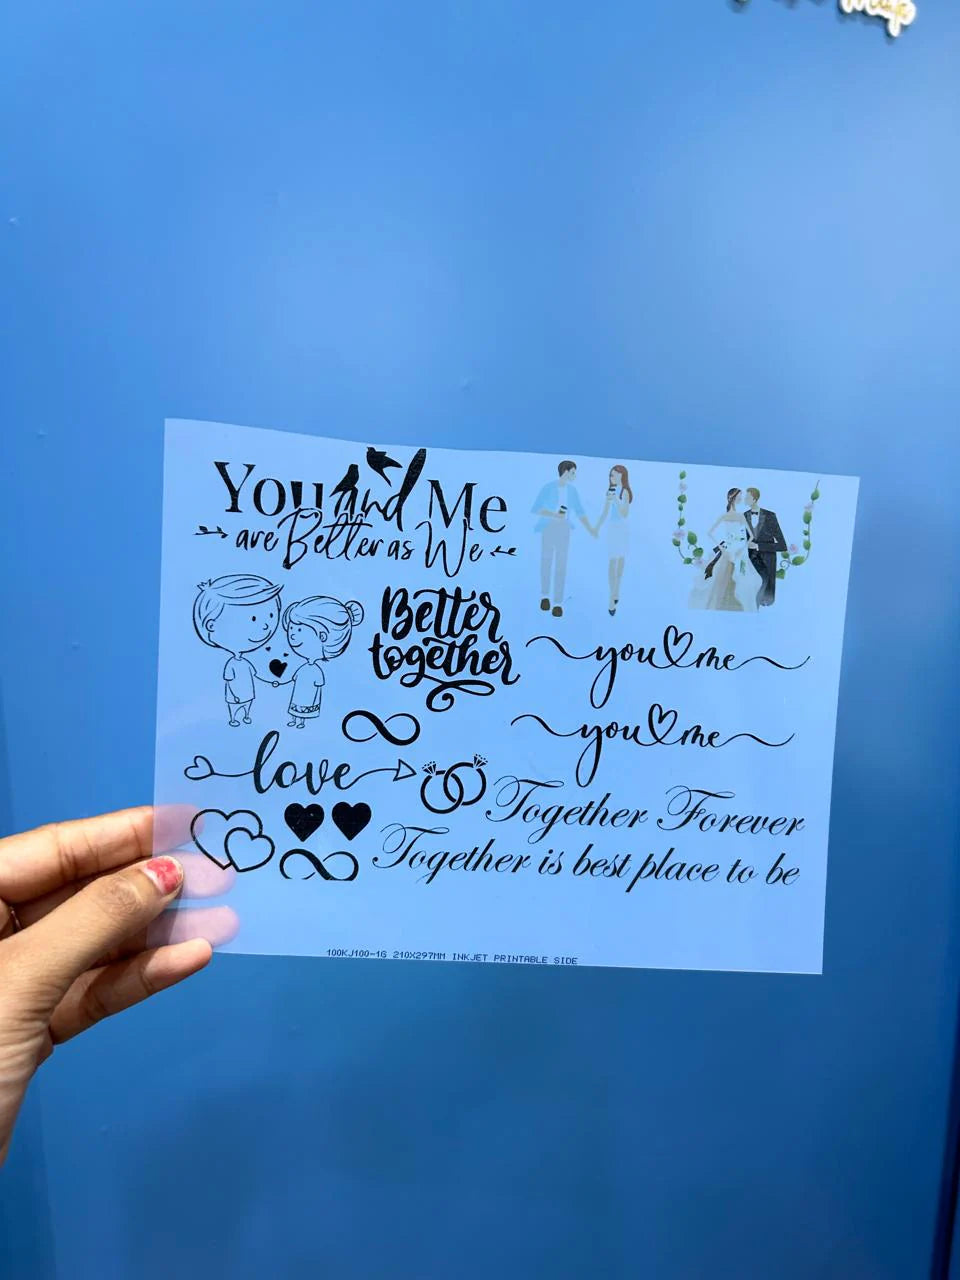 You and Me
are Better as We
Better
together
you me
you me
love
Together Forever
Together is best place to be
100KJ100-1G 210X297MM INKJET PRINTABLE SIDE